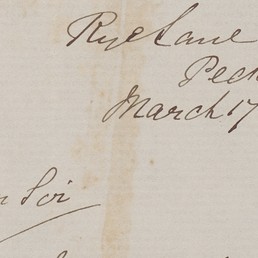 Rye Lane
Peck
March 17
Sir